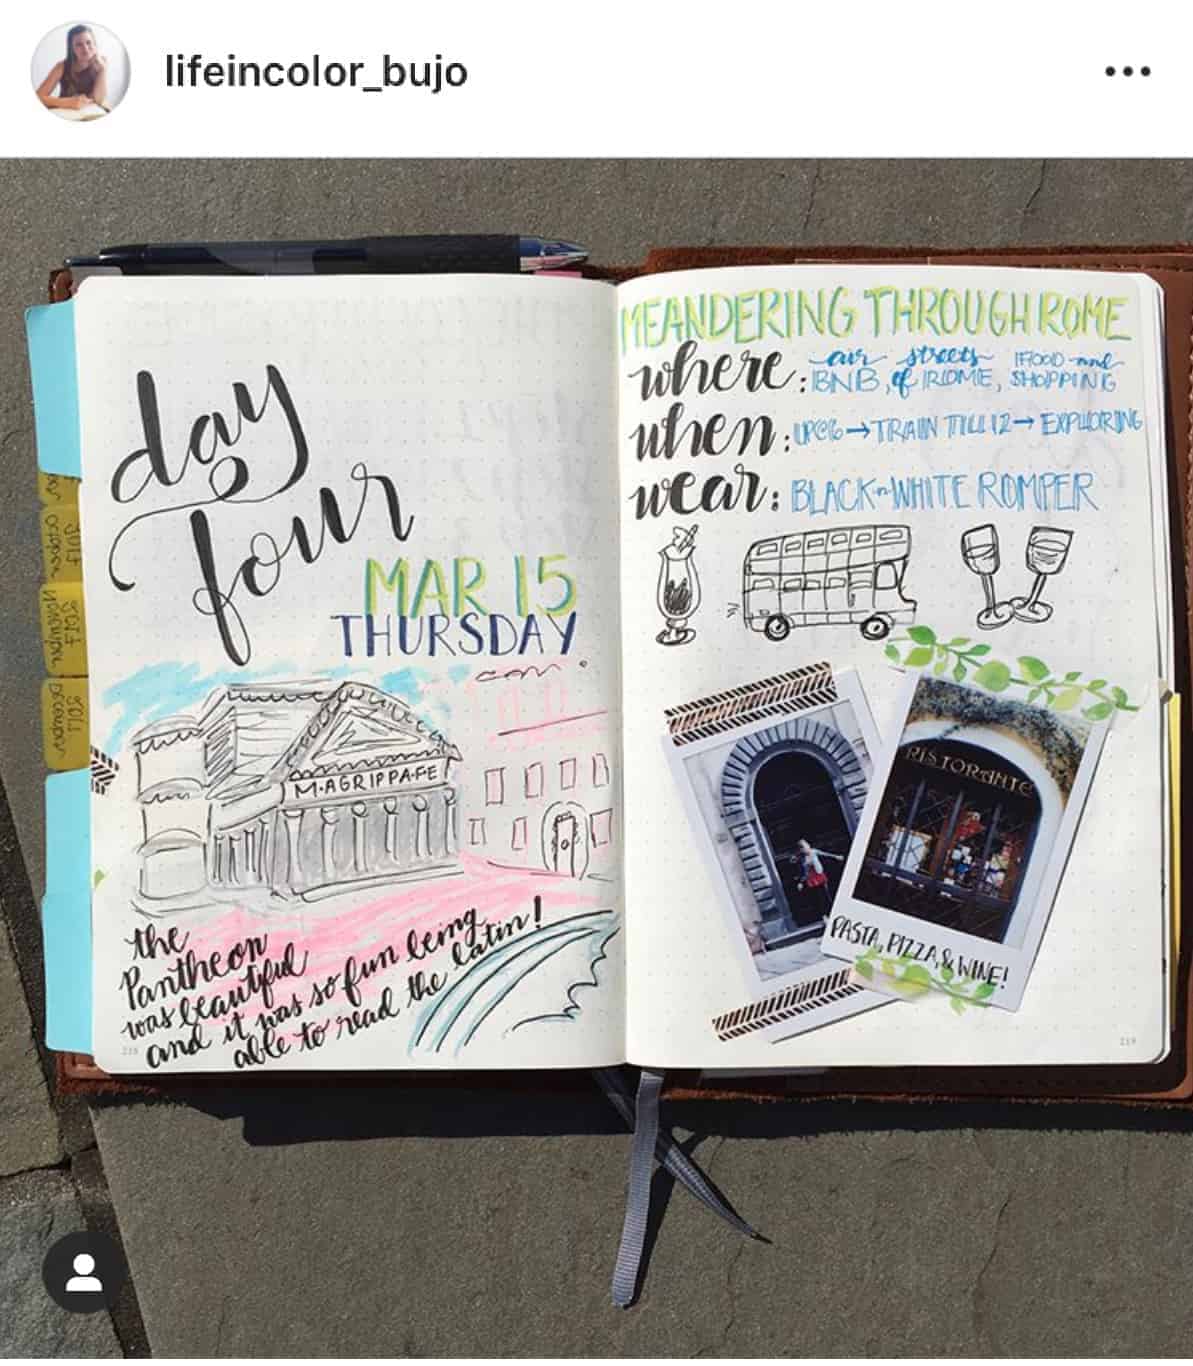 lifeincolor_bujo
day
four
MAR 15
THURSDAY
M·AGRIPPA·FE
the
Pantheon
was beautiful
and it was so fun being
able to read the latin!
218
MEANDERING THROUGH ROME
where: air BNB, streets of ROME, FOOD and SHOPPING
when: UP@6 → TRAIN TILL 12 → EXPLORING
wear: BLACK-n-WHITE ROMPER
RISTORANTE
PASTA, PIZZA, & WINE!
219
2017
OCTOBER
2017
NOVEMBER
DECEMBER